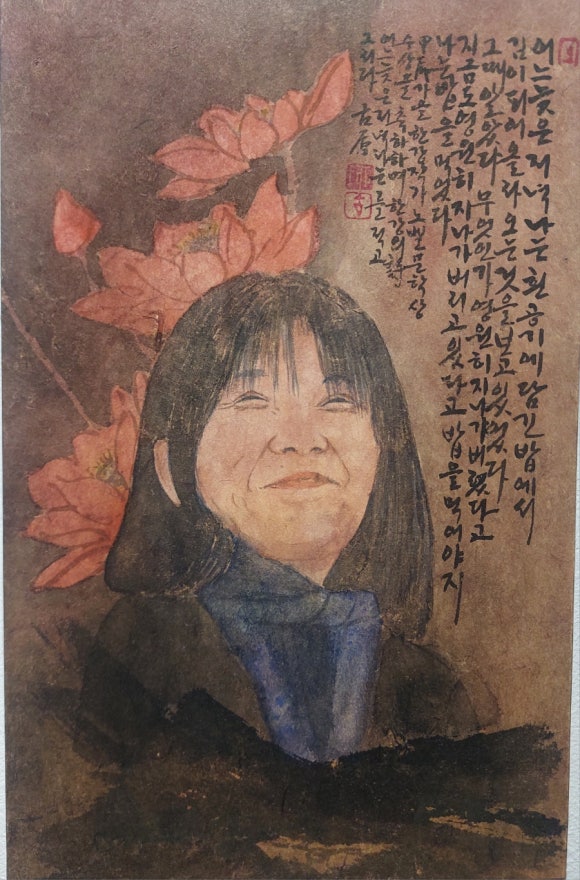 어느 늦은 저녁 나는 흰 공기에 담긴 밥에서
김이 피어 올라오는 것을 보고 있었다
그때 알았다 무엇인가 영원히 지나가버렸다고
지금도 영원히 지나가버리고 있다고 밥을 먹어야지
나는 밥을 먹었다
甲辰가을 한강작가 노벨문학상
수상을 축하하며 한강의 詩
어느 늦은 저녁 나는 를 적고
그리다